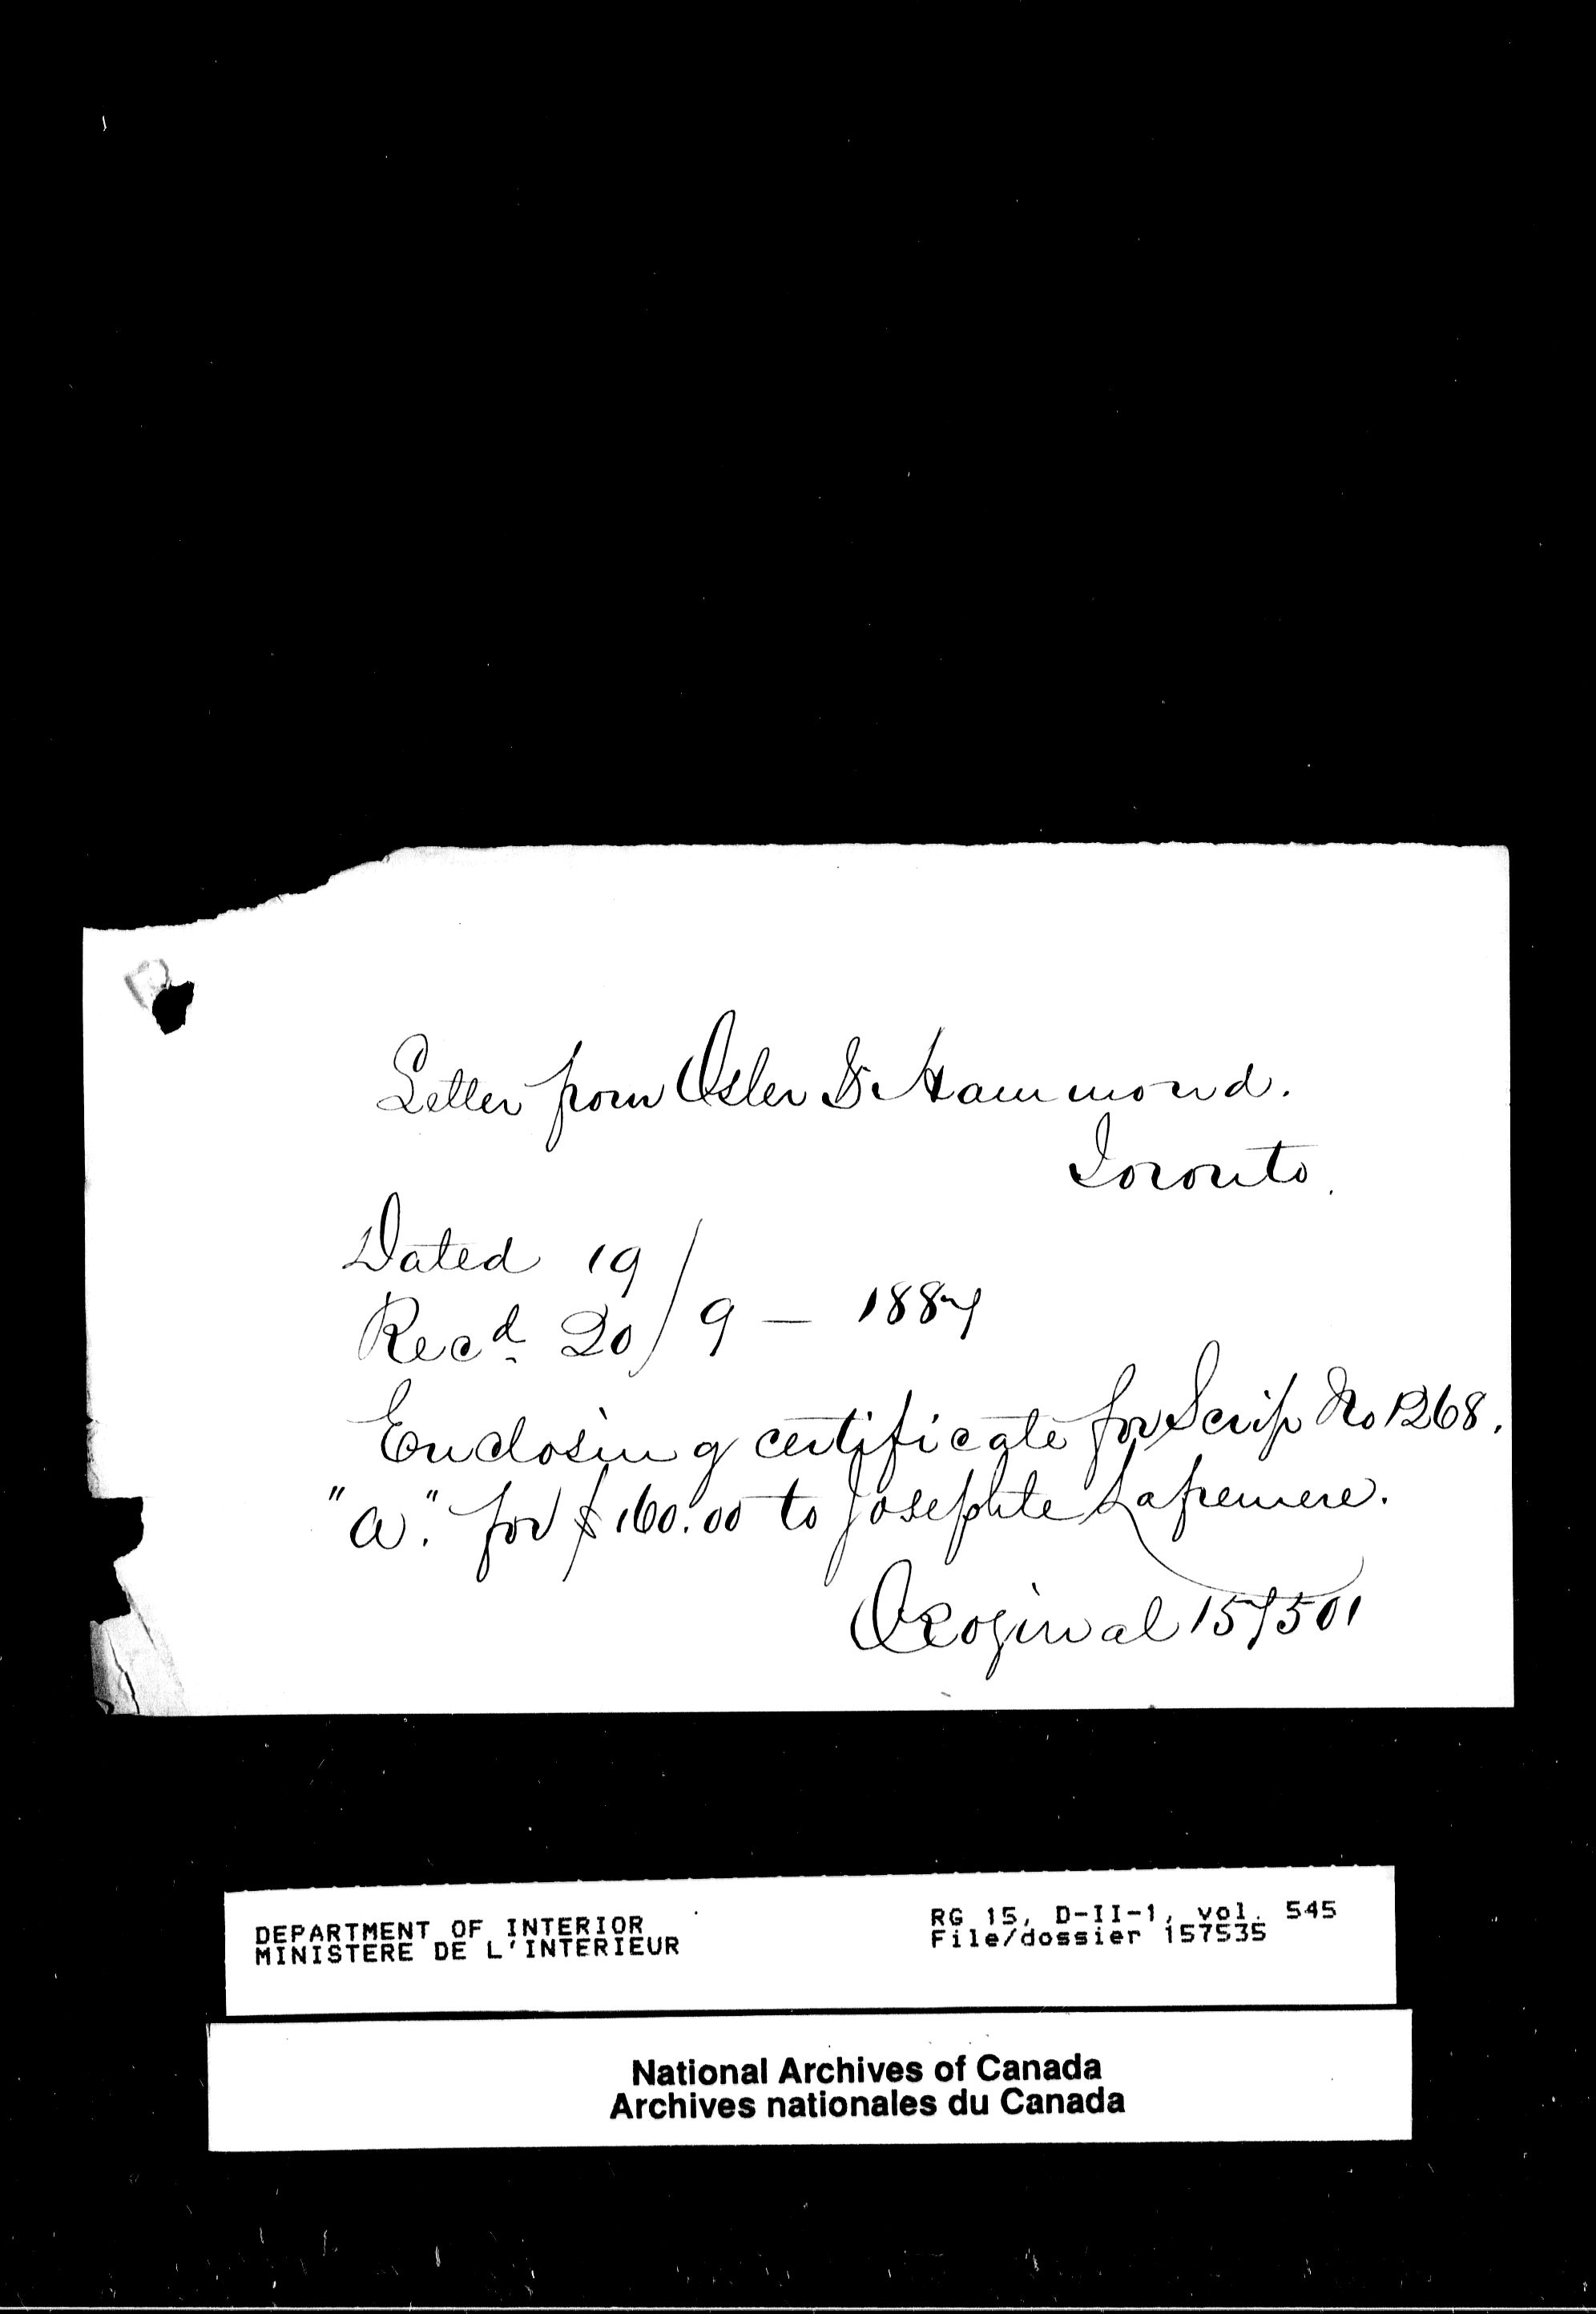 Letter from Osler & Hammond.
Toronto.
Dated 19/
Recd 20/9 — 1887
Enclosing certificate for Scrip No 1268.
"A". for $160.00 to Josephte Lafreniere.
Original 157501
DEPARTMENT OF INTERIOR
MINISTERE DE L'INTERIEUR
RG 15, D-II-1, vol. 545
File/dossier 157535
National Archives of Canada
Archives nationales du Canada